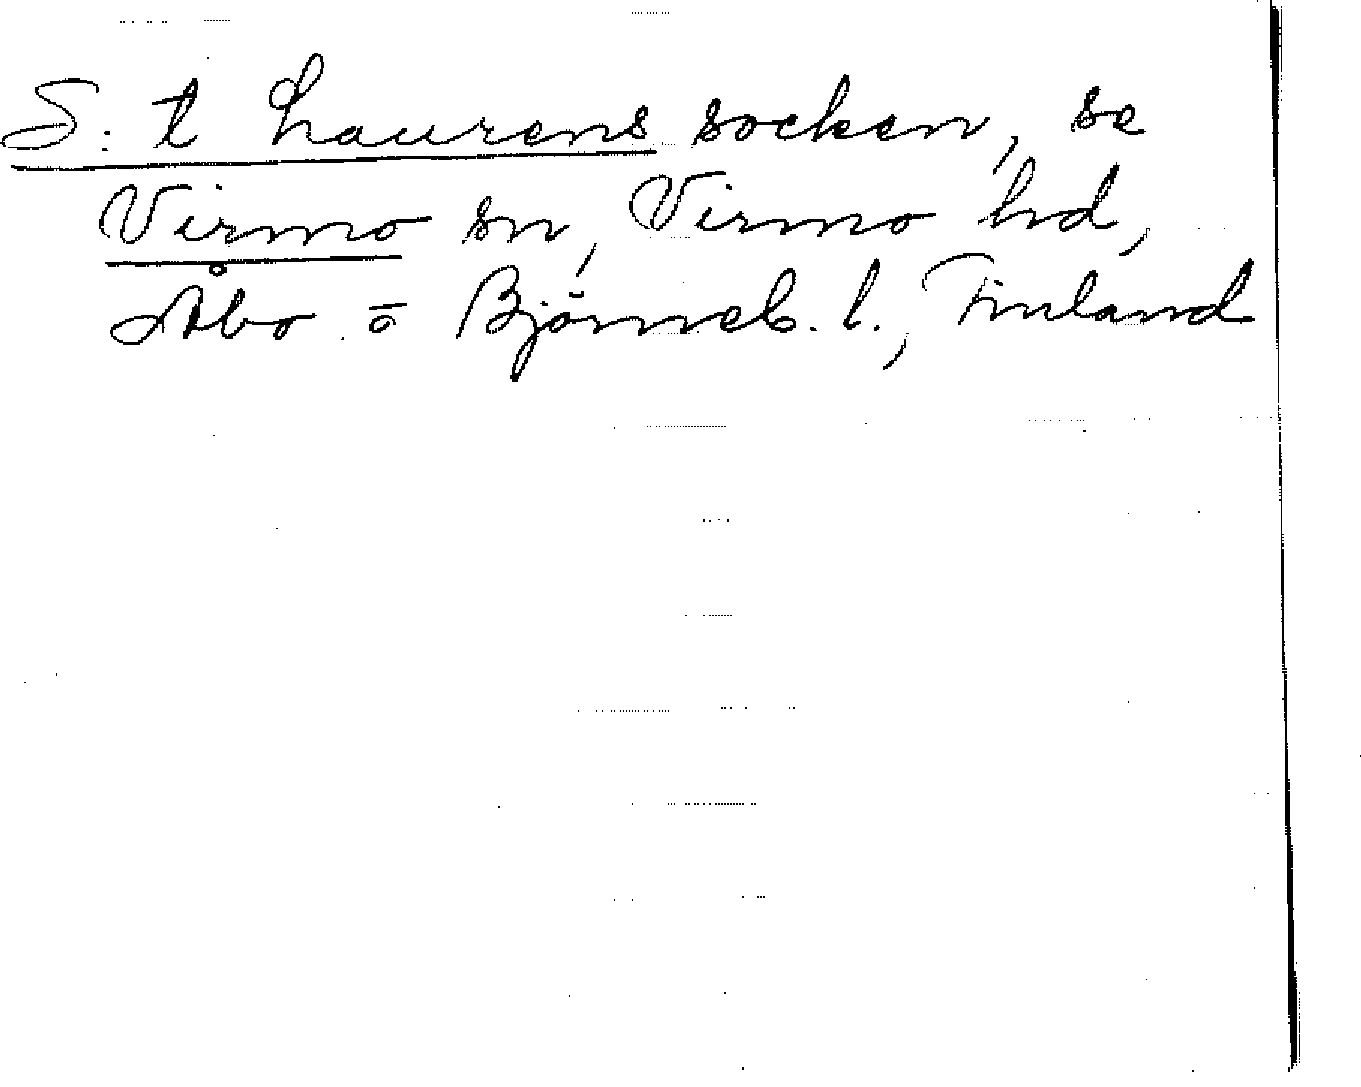 S:t Laurens socken, se
Virmo sn, Virmo hd,
Åbo o Björneb. l., Finland